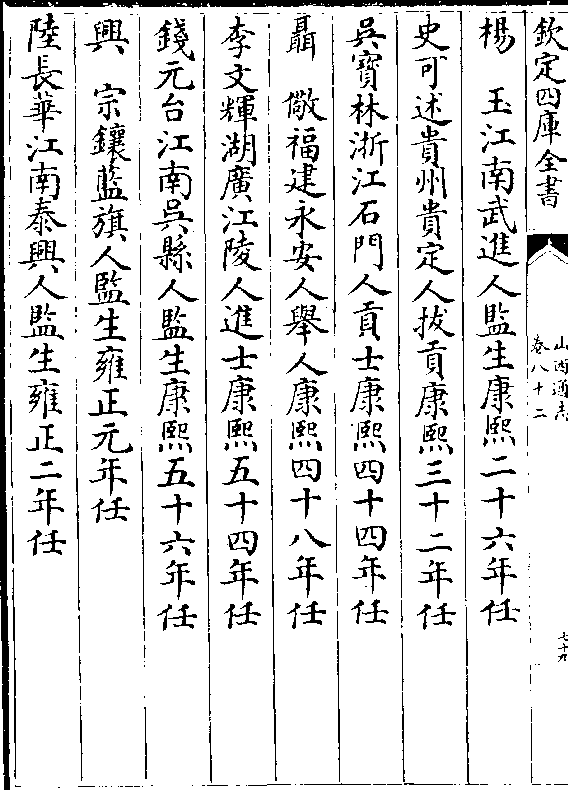 欽定四庫全書
山西通志
卷八十二
七十九
楊　玉江南武進人監生康熙二十六年任
史可述貴州貴定人拔貢康熙三十二年任
吳寶林浙江石門人貢士康熙四十四年任
聶　儆福建永安人舉人康熙四十八年任
李文輝湖廣江陵人進士康熙五十四年任
錢元台江南吳縣人監生康熙五十六年任
興　宗鑲藍旗人監生雍正元年任
陸長華江南泰興人監生雍正二年任